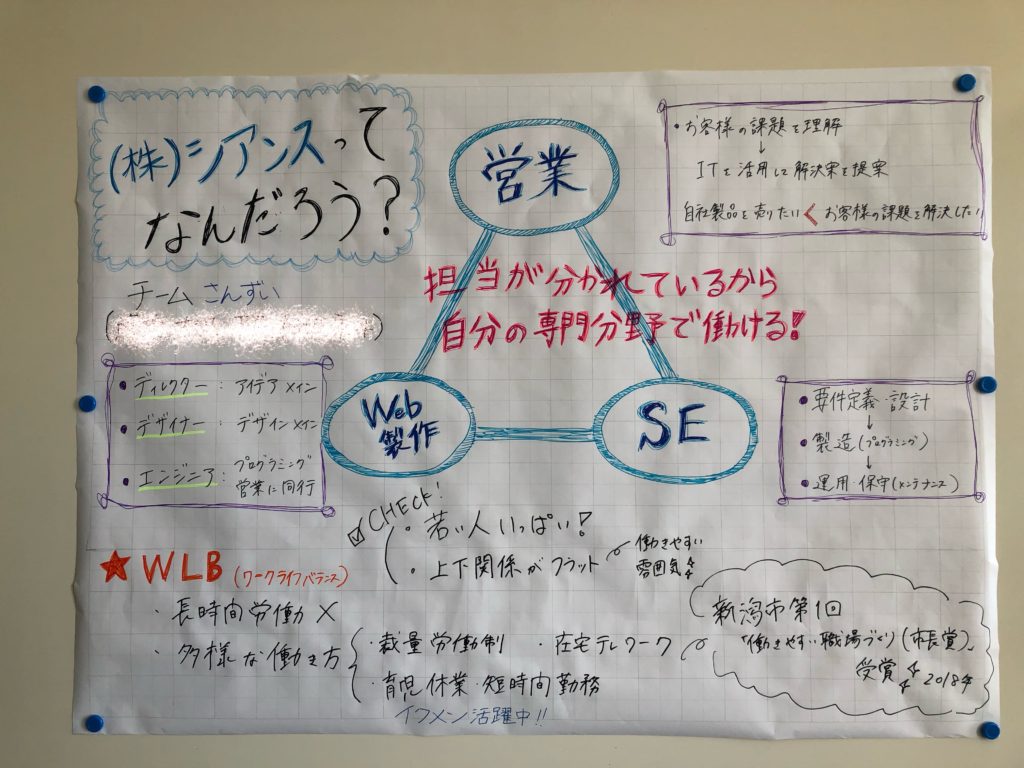 (株)シアンスって
なんだろう?
チーム さんずい
営業
・お客様の課題を理解
↓
ITを活用して解決案を提案
自社製品を売りたい < お客様の課題を解決したい
担当が分かれているから
自分の専門分野で働ける!
・ディレクター:アイデアメイン
・デザイナー:デザインメイン
・エンジニア:プログラミング
営業に同行
Web
製作
SE
・要件定義・設計
↓
・製造(プログラミング)
↓
・運用・保守(メンテナンス)
☑CHECK!
・若い人いっぱい!
・上下関係がフラット
働きやすい
雰囲気
★WLB(ワークライフバランス)
・長時間労働×
・多様な働き方
・裁量労働制 ・在宅テレワーク
・育児休業・短時間勤務
イクメン活躍中!!
新潟市第1回
「働きやすい職場づくり(市長賞)」
受賞 2018年